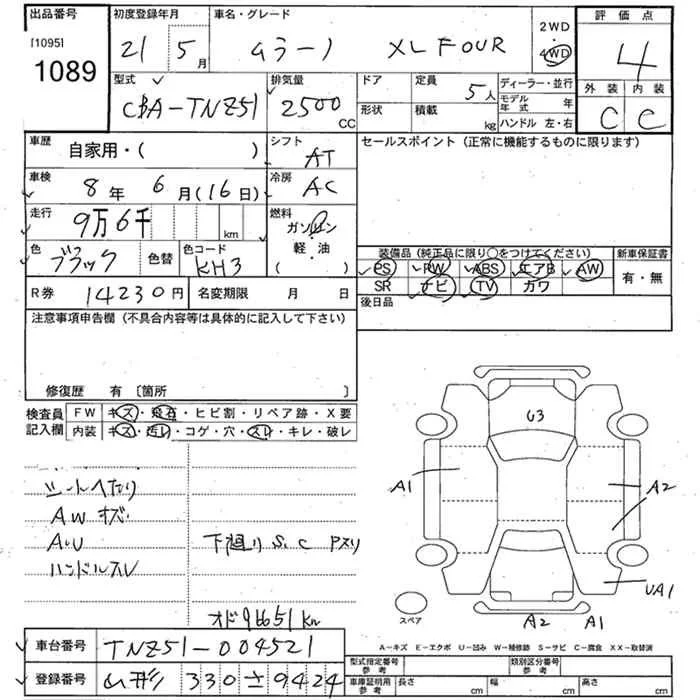 出品番号
[1095]
1089
初度登録年月
21 5 月
車名・グレード
ムラーノ XL FOUR
2WD
4WD
評価点
4
外装 内装
C C
型式
CBA-TNZ51
排気量
2500 CC
ドア
形状
定員
5人
積載
kg
ディーラー・並行
モデル年式 年
ハンドル 左・右
車歴
自家用・( )
シフト
AT
車検
8年 6月(16日)
冷房
AC
走行
9万6千 km
燃料
ガソリン
軽・油
( )
色
ブラック
色替
色コード
KH3
R券
14230円
名変期限 月 日
セールスポイント(正常に機能するものに限ります)
装備品(純正品に限り○をつけてください)
PS PW ABS エアB AW
SR ナビ TV カワ
新車保証書
有・無
後日品
注意事項申告欄(不具合内容等は具体的に記入して下さい)
修復歴 有〔箇所 〕
検査員記入欄
FW キズ・飛石・ヒビ割・リペア跡・X要
内装 キズ・汚レ・コゲ・穴・スレ・キレ・破レ
シートヘタリ
AWキズ
A・U
ハンドルスレ
下廻りS、C Pスリ
オド96651km
G3
A1
A2
UA1
A2 A1
スペア
車台番号
TNZ51-004521
登録番号
山形 330 さ 9424
A-キズ E-エクボ U-凹み W-補修跡 S-サビ C-腐食 XX-取替済
型式指定番号
参考
類別区分番号
参考
車庫証明用
参考
長さ cm 幅 cm 高さ cm